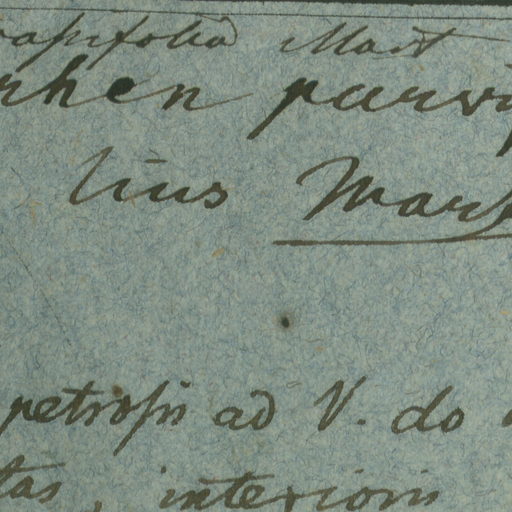 rassifolia Mart
rhen parvi
lius Mart
petrosis ad V. do
tas, interioris